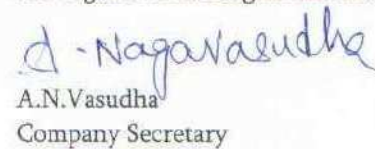 A. Nagavasudha
A.N.Vasudha
Company Secretary